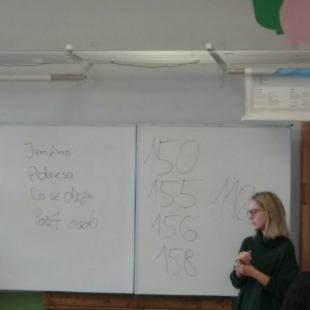 Jméno
Adresa
Co se děje
Počet osob
150
155
156
158
112